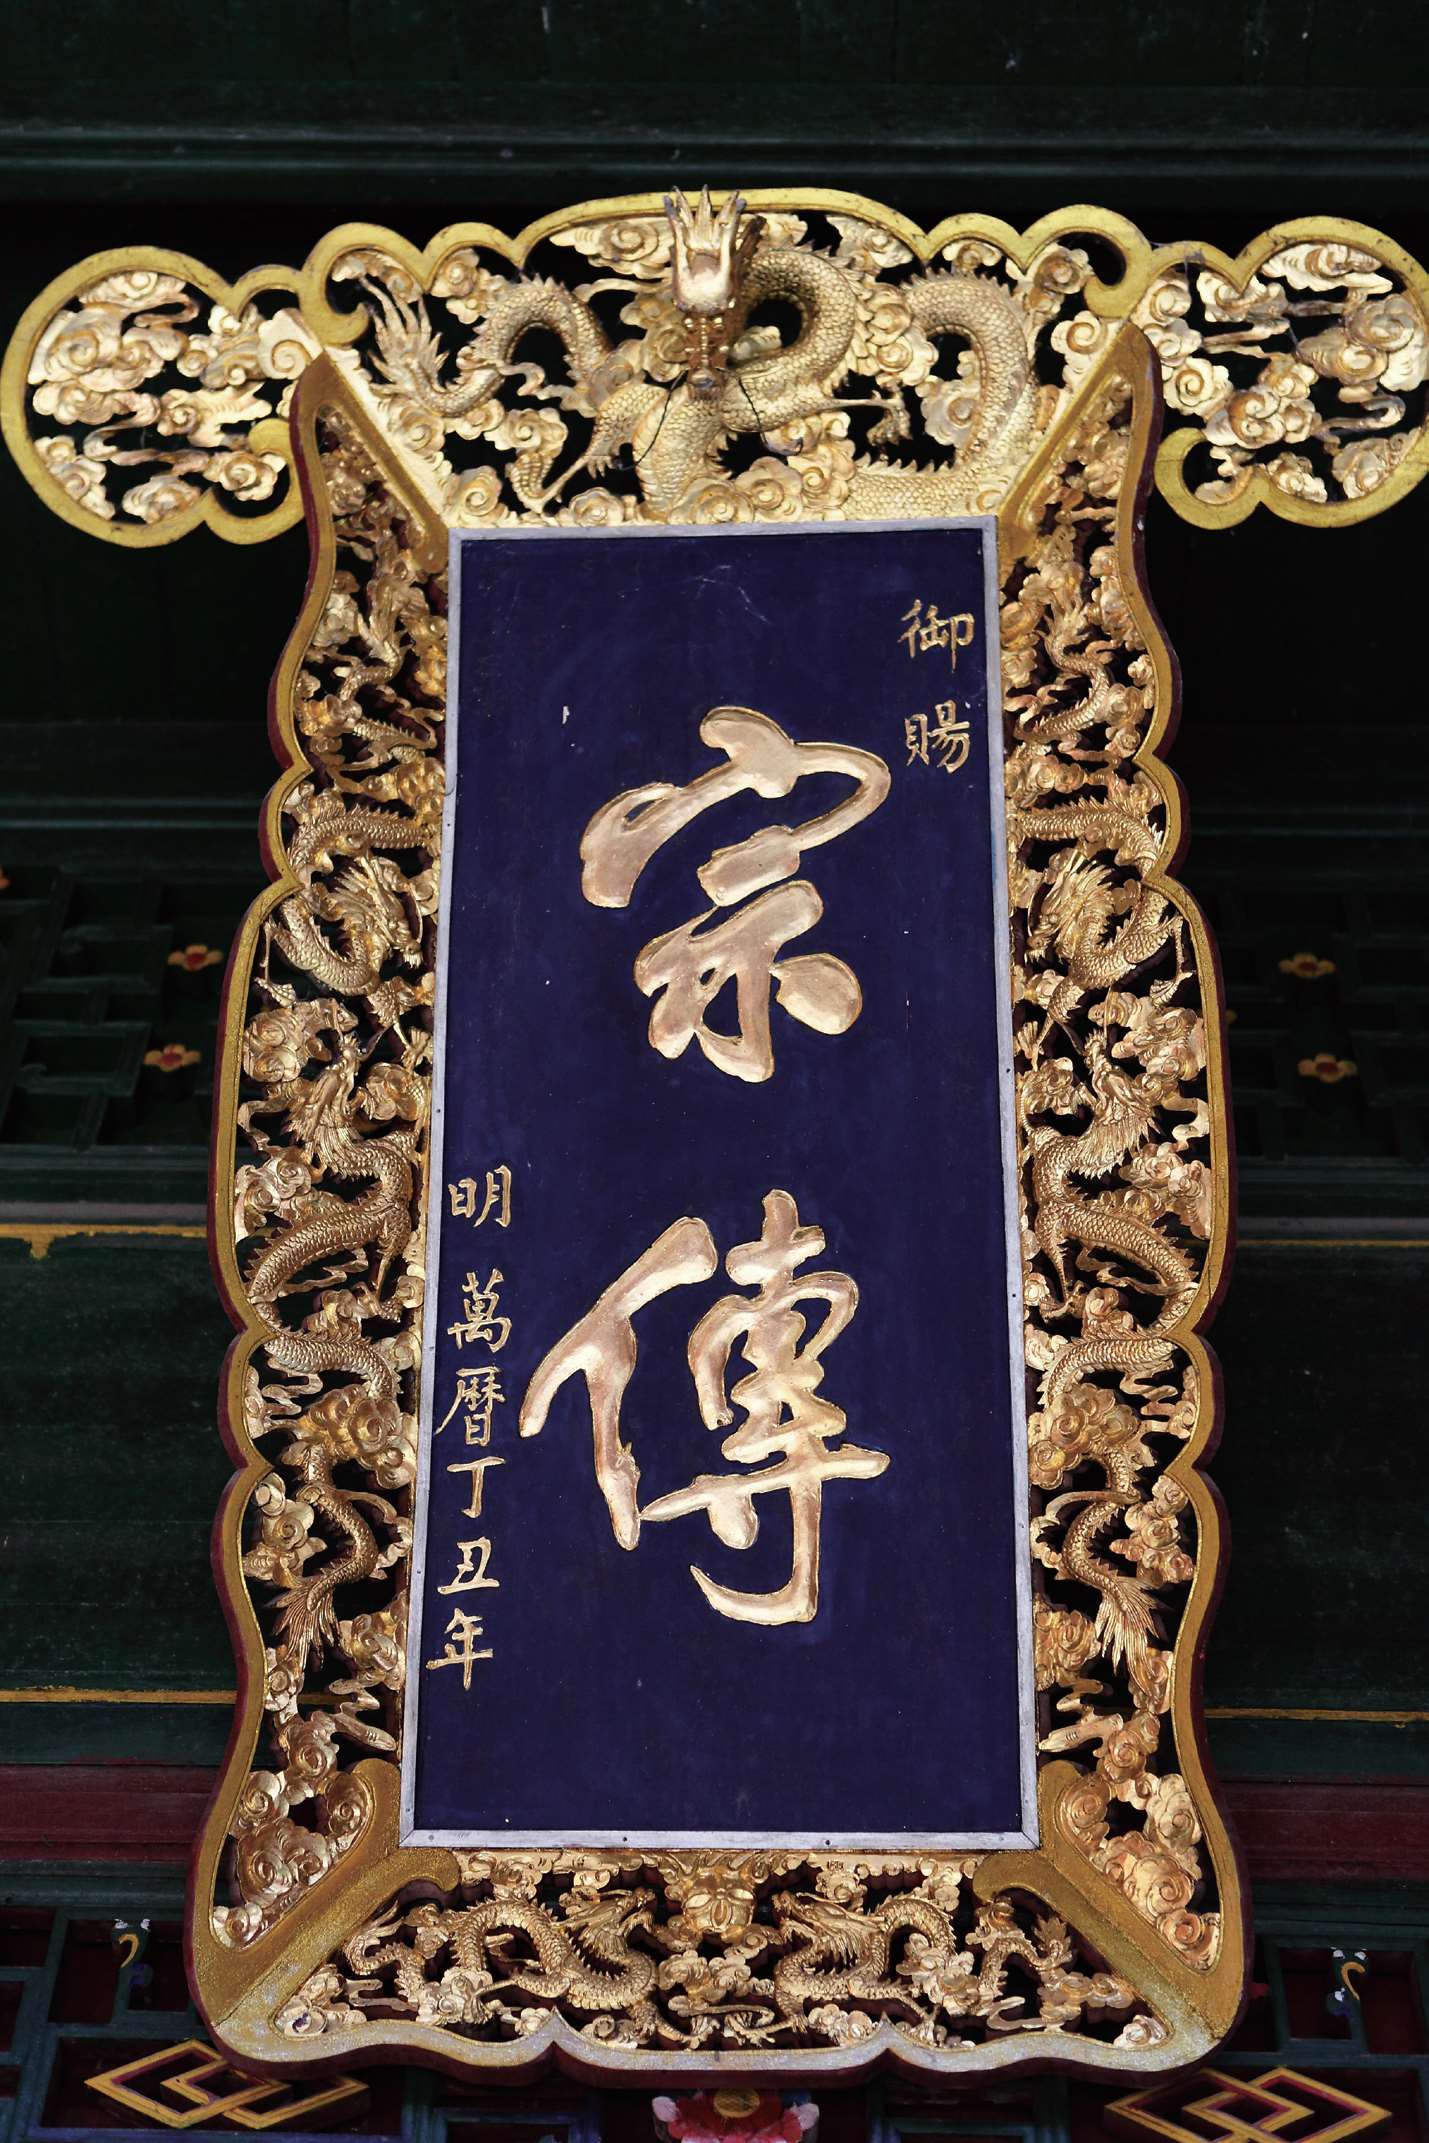 御賜
宗傳
明萬曆丁丑年